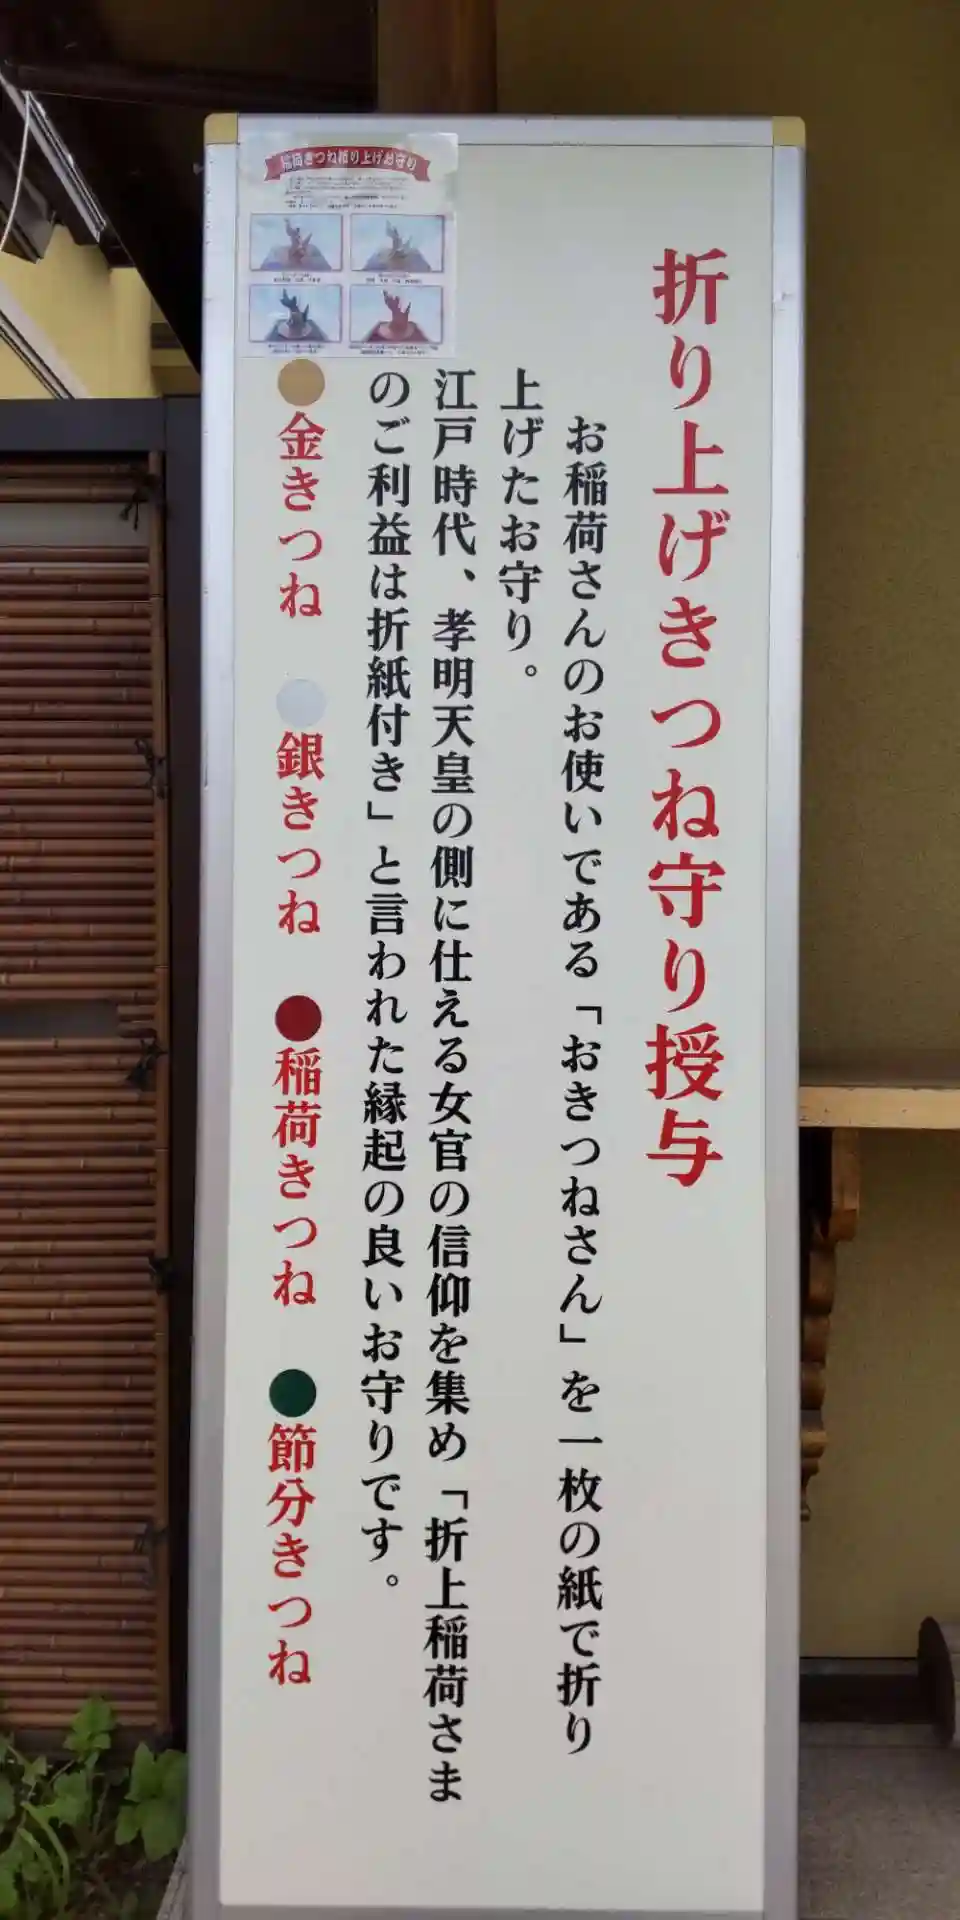 折り上げきつね守り授与
お稲荷さんのお使いである「おきつねさん」を一枚の紙で折り
上げたお守り。
江戸時代、孝明天皇の側に仕える女官の信仰を集め「折上稲荷さま
のご利益は折紙付き」と言われた縁起の良いお守りです。
金きつね 銀きつね 稲荷きつね 節分きつね
稲荷きつね折り上げお守り